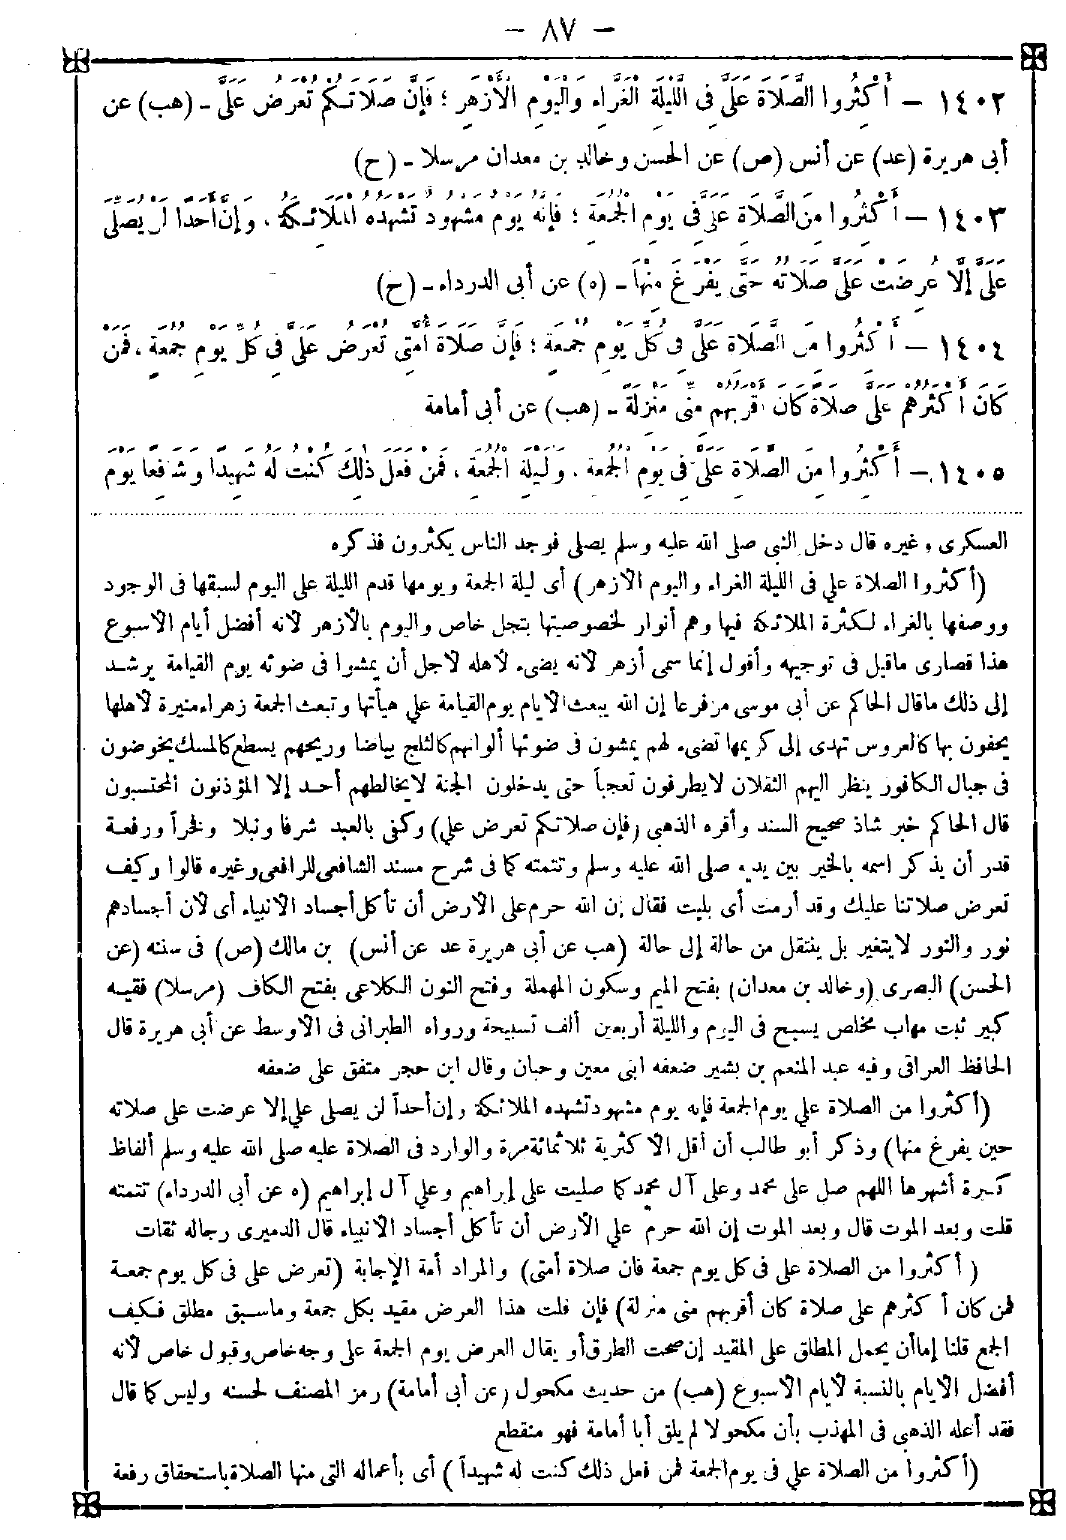 – ٨٧ –
١٤٠٢ – أَكْثِرُوا الصَّلَاةَ عَلَيَّ فِى اللَّيْلَةِ الْغَرَّاءِ وَالْيَوْمِ الْأَزْهَرِ ؛ فَإِنَّ صَلَاتَكُمْ تُعْرَضُ عَلَيَّ – (هب) عن
أبى هريرة (عد) عن أنس (ص) عن الحسن وخالد بن معدان مرسلا – (ح)
١٤٠٣ – أَكْثِرُوا مِنَ الصَّلَاةِ عَلَيَّ فِى يَوْمِ الْجُمُعَةِ ؛ فَإِنَّهُ يَوْمٌ مَشْهُودٌ تَشْهَدُهُ الْمَلَائِكَةُ ، وَإِنَّ أَحَدًا لَنْ يُصَلِّىَ
عَلَيَّ إِلَّا عُرِضَتْ عَلَيَّ صَلَاتُهُ حَتَّى يَفْرُغَ مِنْهَا – (ه) عن أبى الدرداء – (ح)
١٤٠٤ – أَكْثِرُوا مِنَ الصَّلَاةِ عَلَيَّ فِى كُلِّ يَوْمِ جُمُعَةٍ ؛ فَإِنَّ صَلَاةَ أُمَّتِى تُعْرَضُ عَلَيَّ فِى كُلِّ يَوْمِ جُمُعَةٍ ، فَمَنْ
كَانَ أَكْثَرَهُمْ عَلَيَّ صَلَاةً كَانَ أَقْرَبَهُمْ مِنِّى مَنْزِلَةً – (هب) عن أبى أمامة
١٤٠٥ – أَكْثِرُوا مِنَ الصَّلَاةِ عَلَيَّ فِى يَوْمِ الْجُمُعَةِ ، وَلَيْلَةِ الْجُمُعَةِ ، فَمَنْ فَعَلَ ذٰلِكَ كُنْتُ لَهُ شَهِيدًا وَشَافِعًا يَوْمَ
العسكرى وغيره قال دخل النبى صلى الله عليه وسلم يصلى فوجد الناس يكثرون فذكره
(أكثروا الصلاة علي فى الليلة الغراء واليوم الازهر) أى ليلة الجمعة ويومها قدم الليلة على اليوم لسبقها فى الوجود
ووصفها بالغراء لكثرة الملائكة فيها وهم أنوار لخصوصيتها بتجل خاص واليوم بالأزهر لانه أفضل أيام الاسبوع
هذا قصارى ماقيل فى توجيهه وأقول إنما سمى أزهر لانه يضىء لاهله لاجل أن يمشوا فى ضوئه يوم القيامة يرشد
إلى ذلك ماقال الحاكم عن أبى موسى مرفوعا إن الله يبعث الايام يوم القيامة علي هيأتها وتبعث الجمعة زهراء منيرة لاهلها
يحفون بها كالعروس تهدى إلى كريمها تضىء لهم يمشون فى ضوئها ألوانهم كالثلج بياضا وريحهم يسطع كالمسك يخوضون
فى جبال الكافور ينظر اليهم الثقلان لايطرفون تعجباً حتى يدخلون الجنة لايخالطهم أحد إلا المؤذنون المحتسبون
قال الحاكم خبر شاذ صحيح السند وأقره الذهبى (فإن صلاتكم تعرض علي) وكفى بالعبد شرفا ونبلا وفخراً ورفعة
قدر أن يذكر اسمه بالخير بين يديه صلى الله عليه وسلم وتتمته كما فى شرح مسند الشافعى للرافعى وغيره قالوا وكيف
تعرض صلاتنا عليك وقد أرمت أى بليت فقال إن الله حرم على الارض أن تأكل أجساد الانبياء أى لان أجسادهم
نور والنور لايتغير بل ينتقل من حالة إلى حالة (هب عن أبى هريرة عد عن أنس) بن مالك (ص) فى سننه (عن
الحسن) البصرى (وخالد بن معدان) بفتح الميم وسكون المهملة وفتح النون الكلاعى بفتح الكاف (مرسلا) فقيه
كبير ثبت مهاب مخلص يسبح فى اليوم والليلة أربعين ألف تسبيحة ورواه الطبرانى فى الاوسط عن أبى هريرة قال
الحافظ العراقى وفيه عبد المنعم بن بشير ضعفه ابنى معين وحبان وقال ابن حجر متفق على ضعفه
(أكثروا من الصلاة علي يوم الجمعة فإنه يوم مشهود تشهده الملائكة وإن أحداً لن يصلى علي إلا عرضت على صلاته
حين يفرغ منها) وذكر أبو طالب أن أقل الاكثرية ثلاثمائة مرة والوارد فى الصلاة عليه صلى الله عليه وسلم ألفاظ
كثيرة أشهرها اللهم صل على محمد وعلى آل محمد كما صليت على إبراهيم وعلي آل إبراهيم (ه عن أبى الدرداء) تتمته
قلت وبعد الموت قال وبعد الموت إن الله حرم علي الأرض أن تأكل أجساد الانبياء قال الدميرى رجاله ثقات
(أكثروا من الصلاة على فى كل يوم جمعة فان صلاة أمتى) والمراد أمة الإجابة (تعرض على فى كل يوم جمعة
فمن كان أكثرهم على صلاة كان أقربهم منى منزلة) فإن قلت هذا العرض مقيد بكل جمعة وماسبق مطلق فكيف
الجمع قلنا إما أن يحمل المطلق على المقيد إن صحت الطرق أو يقال العرض يوم الجمعة على وجه خاص وقبول خاص لأنه
أفضل الايام بالنسبة لأيام الاسبوع (هب) من حديث مكحول (عن أبى أمامة) رمز المصنف لحسنه وليس كما قال
فقد أعله الذهبى فى المهذب بأن مكحولا لم يلق أبا أمامة فهو منقطع
(أكثروا من الصلاة علي فى يوم الجمعة فمن فعل ذلك كنت له شهيداً) أى بأعماله التى منها الصلاة باستحقاق رفعة